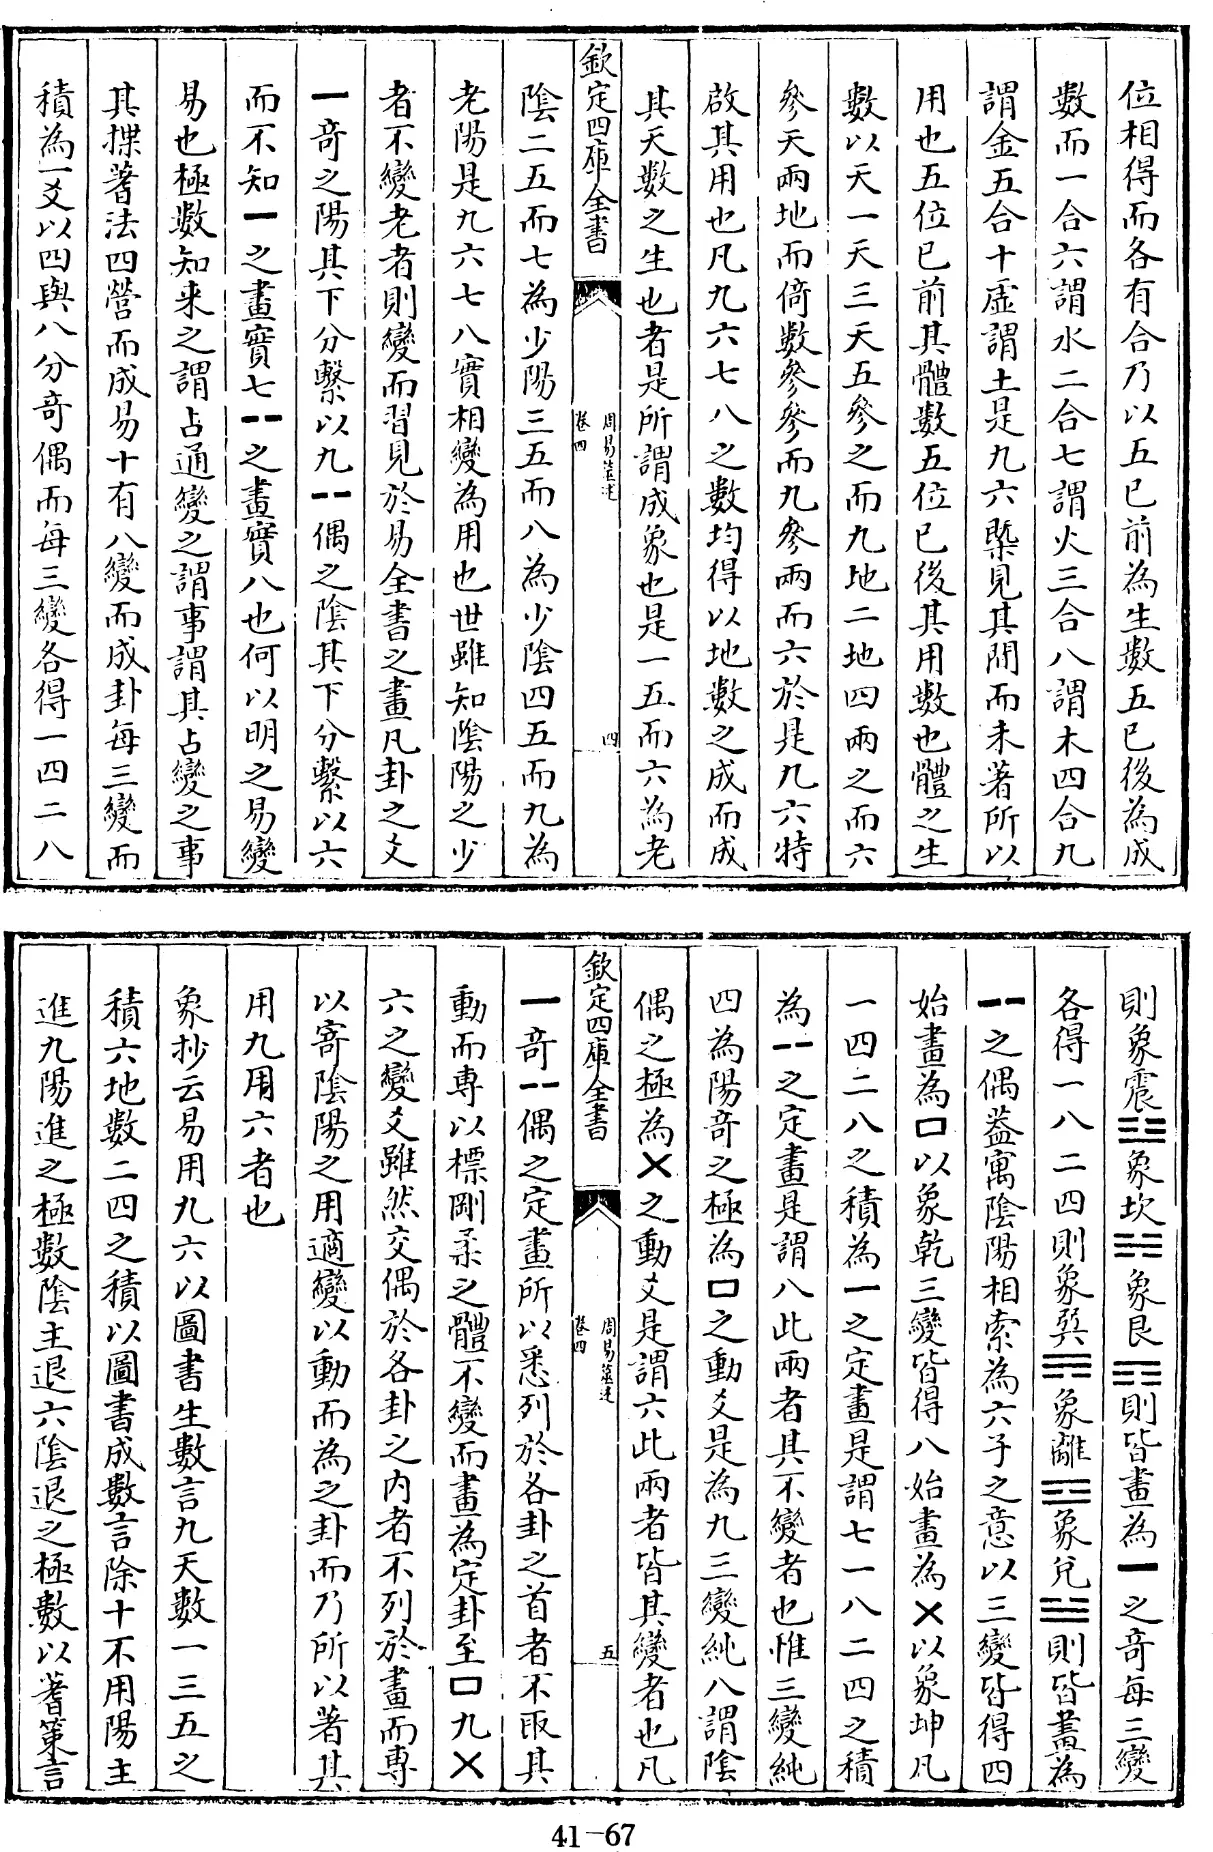 位相得而各有合乃以五已前為生數五已後為成
數而一合六謂水二合七謂火三合八謂木四合九
謂金五合十虛謂土是九六槩見其間而未著所以
用也五位已前其體數五位已後其用數也體之生
數以天一天三天五參之而九地二地四兩之而六
參天兩地而倚數參參而九參兩而六於是九六特
啟其用也凡九六七八之數均得以地數之成而成
其天數之生也者是所謂成象也是一五而六為老
欽定四庫全書
周易筮述
卷四
四
陰二五而七為少陽三五而八為少陰四五而九為
老陽是九六七八實相變為用也世雖知陰陽之少
者不變老者則變而習見於易全書之畫凡卦之爻
⚊奇之陽其下分繫以九⚋偶之陰其下分繫以六
而不知⚊之畫實七⚋之畫實八也何以明之易變
易也極數知来之謂占通變之謂事謂其占變之事
其揲蓍法四營而成易十有八變而成卦每三變而
積為一爻以四與八分奇偶而每三變各得一四二八
則象震☳象坎☵象艮☶則皆畫為⚊之奇每三變
各得一八二四則象巽☴象離☲象兌☱則皆畫為
⚋之偶蓋寓陰陽相索為六子之意以三變皆得四
始畫為口以象乾三變皆得八始畫為×以象坤凡
一四二八之積為⚊之定畫是謂七一八二四之積
為⚋之定畫是謂八此兩者其不變者也惟三變純
四為陽奇之極為口之動爻是為九三變純八謂陰
偶之極為×之動爻是謂六此兩者皆其變者也凡
欽定四庫全書
周易筮述
卷四
五
⚊奇⚋偶之定畫所以悉列於各卦之首者不取其
動而專以標剛柔之體不變而畫為定卦至口九×
六之變爻雖然交偶於各卦之内者不列於畫而專
以寄陰陽之用適變以動而為之卦而乃所以著其
用九用六者也
象抄云易用九六以圖書生數言九天數一三五之
積六地數二四之積以圖書成數言除十不用陽主
進九陽進之極數陰主退六陰退之極數以蓍策言
41-67